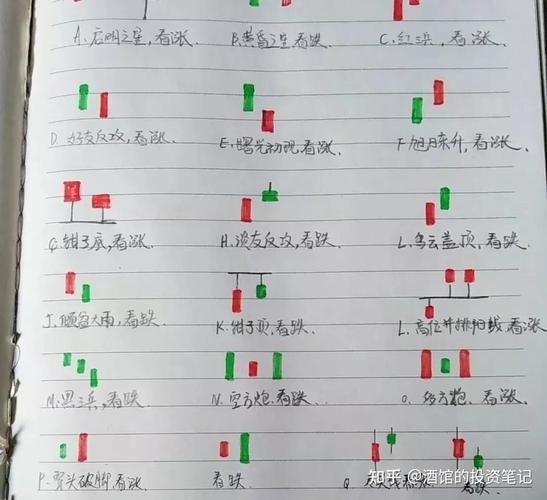 A. 启明之星,看涨.
B. 黄昏之星看跌.
C. 红三兵,看涨.
D. 好友反攻,看涨.
E. 曙光初现看涨.
F. 旭日东升,看涨.
G. 钳子底,看涨.
H. 淡友反攻,看跌.
L. 乌云盖顶,看跌.
J. 倾盆大雨,看跌.
K. 钳子顶,看跌.
L. 高位并排阳线 看涨
M. 黑三兵,看跌.
N. 空方炮.看跌.
O. 多方炮.看涨.
P. 穿头破脚 看涨.
看跌.
Q.
看跌.
知乎 @酒馆的投资笔记